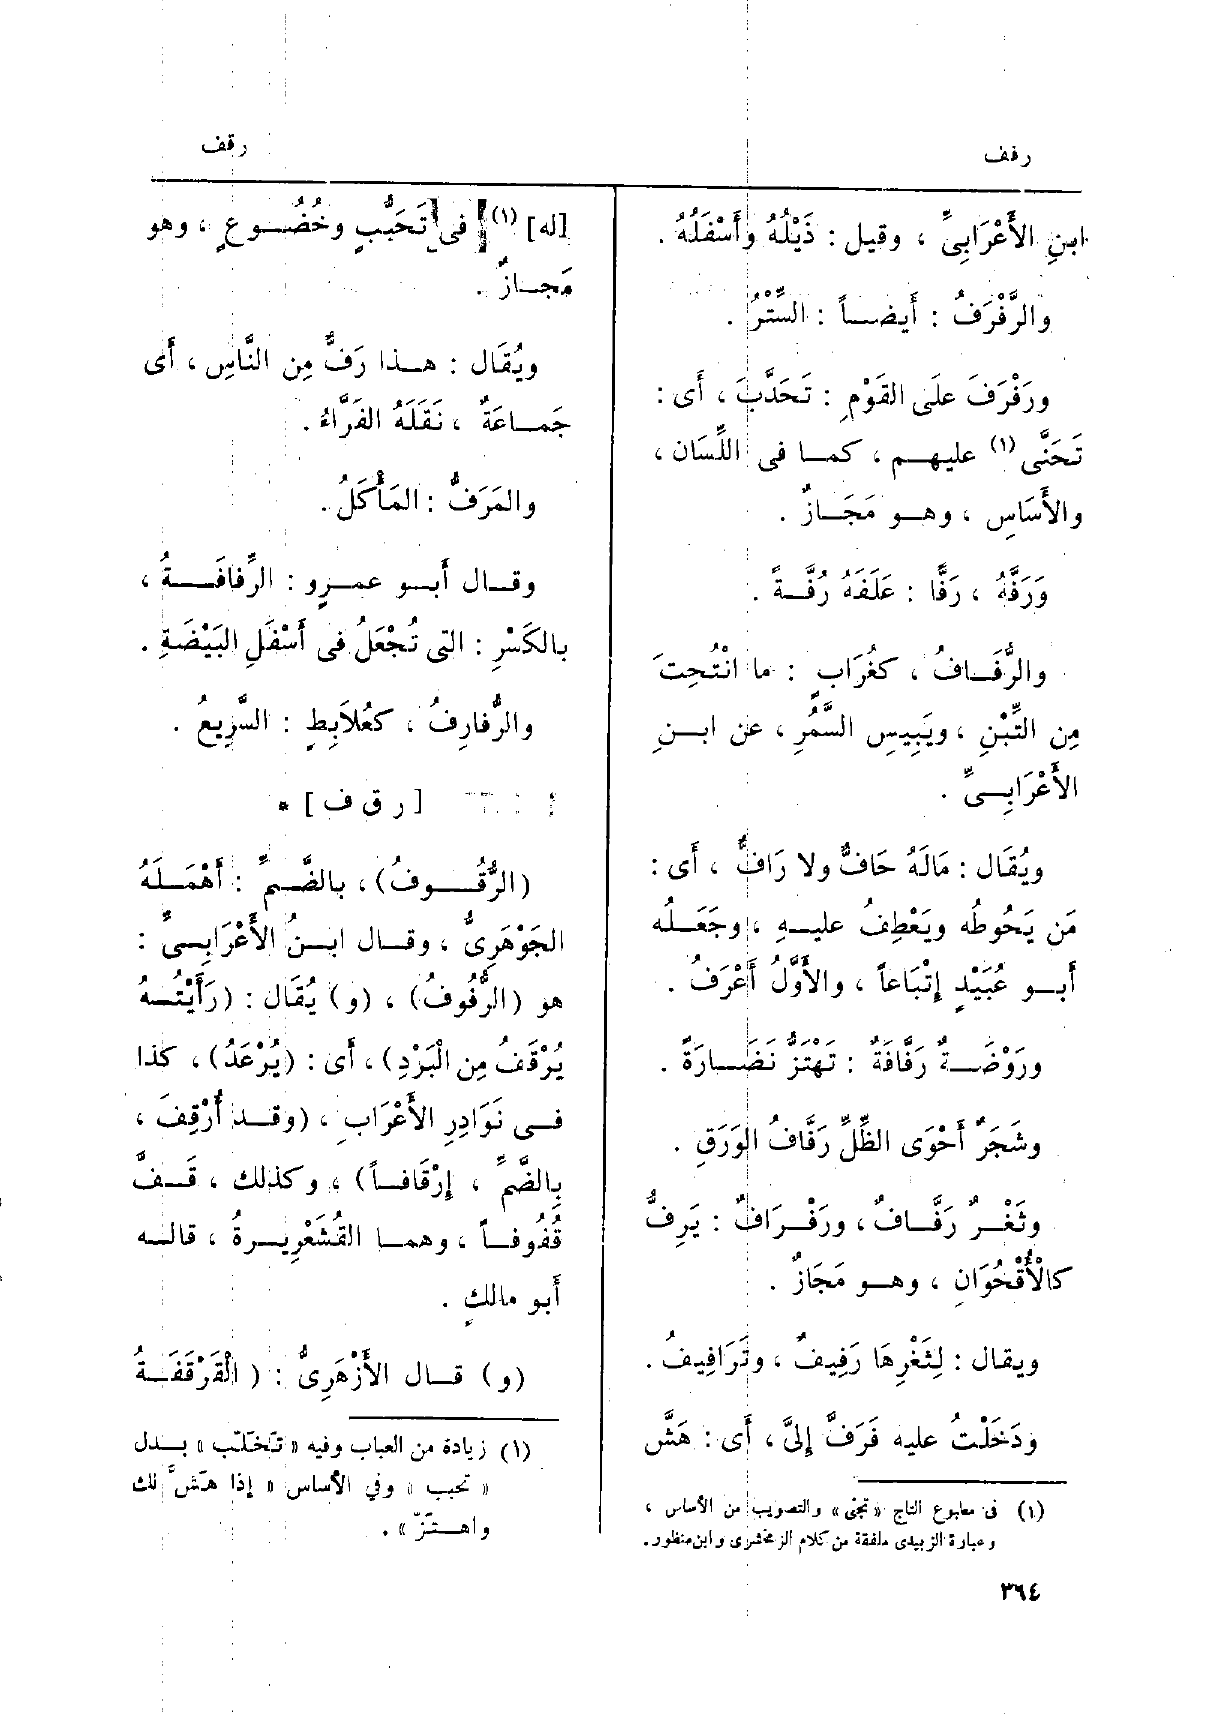 رفف
رقف
ابنِ الأَعْرَابِىِّ ، وقيل : ذَيْلُهُ وأَسْفَلُهُ .
والرَّفْرَفُ : أَيضــاً : السِّتْرُ .
ورَفْرَفَ علَى القَوْمِ : تَحَدَّبَ ، أَى :
تَحَنَّى (١) عليهـم ، كمـا فى اللِّسَان ،
والأَسَاسِ ، وهـو مَجَـازٌ .
وَرَفَّهُ ، رَفًّا : عَلَفَهُ رُفَّـةً .
والرُّفَـافُ ، كغُرَابٍ : ما انْتُحِتَ
مِن التِّبْنِ ، ويَبِيسِ السَّمُرِ ، عن ابـنِ
الأَعْرَابِـىِّ .
ويُقَال : مَالَهُ حَافٌّ ولا رَافٌّ ، أَى :
مَن يَحُوطُه ويَعْطِفُ عليـهِ ، وجَعَـلُه
أَبـو عُبَيْدٍ إِتْبَاعاً ، والأَوَّلُ أَعْرَفُ .
ورَوْضَـةٌ رَفَّافَةٌ : تَهْتَزُّ نَضَـارَةً .
وشَجَرٌ أَحْوَى الظِّلِّ رَفَّافُ الوَرَقِ .
وثَغْـرٌ رَفَّـافٌ ، ورَفْـرَافٌ : يَرِفُّ
كالْأُقْحُوَانِ ، وهـو مَجَازٌ .
ويقال : لِثَغْرِهَا رَفِيفٌ ، وتَرَافِيفُ .
ودَخَلْتُ عليه فَرَفَّ إِلىَّ ، أَى : هَشَّ
(١) فى مطبوع التاج «تجنى» والتصويب من الأساس ،
وعبارة الزبيدى ملفقة من كلام الزمخشرى وابن منظور.
٣٦٤
[له] (١) فى تَحَبُّبٍ وخُضُـوعٍ ، وهو
مَجـازٌ .
ويُقَال : هـذا رَفٌّ مِن النَّاسِ ، أَى
جَمـاعَةٌ ، نَقَلَهُ الفَرَّاءُ .
والمَرَفُّ : المَأْكَلُ .
وقـال أَبـو عمـرٍو : الرِّفافَـةُ ،
بالكَسْرِ : التى تُجْعَلُ فى أَسْفَلِ البَيْضَةِ .
والرُّفارِفُ ، كعُلاَبِطٍ : السَّرِيعُ .
[ ر ق ف ] *
(الرُّقُـوفُ) ، بالضَّـمِّ : أَهْمَـلَهُ
الجَوْهَرِىُّ ، وقـال ابـنُ الأَعْرَابِـىِّ :
هو (الرُّفُوفُ) ، (و) يُقَال : (رَأَيْتُـهُ
يُرْقَفُ مِن الْبَرْدِ) ، أَى : (يُرْعَدُ) ، كذا
فـى نَوَادِرِ الأَعْرَابِ ، (وقـد أُرْقِفَ ،
بِالضَّمِّ ، إِرْقَافـاً) ، وكذلك ، قَـفَّ
قُفُوفـاً ، وهمـا القُشَعْرِيـرةُ ، قالـه
أَبو مالكٍ .
(و) قـال الأَزْهَرِىُّ : ( الْقَرْقَفَـةُ
(١) زيادة من العباب وفيه « تَخَلّب » بـدل
« تحبب » وفي الأساس « إذا هَشَّ لك
واهـتَزّ » .